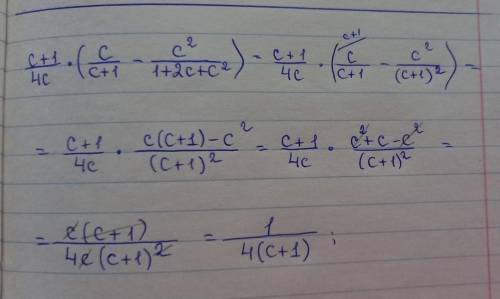 (c+1)/(4c) · (c/(c+1) − c²/(1+2c+c²)) = (c+1)/(4c) · (c^(c+1)/(c+1) − c²/(c+1)²) =
= (c+1)/(4c) · (c(c+1)−c²)/(c+1)² = (c+1)/(4c) · (c²+c−c²)/(c+1)² =
= c(c+1)/(4c(c+1)²) = 1/(4(c+1)) ;